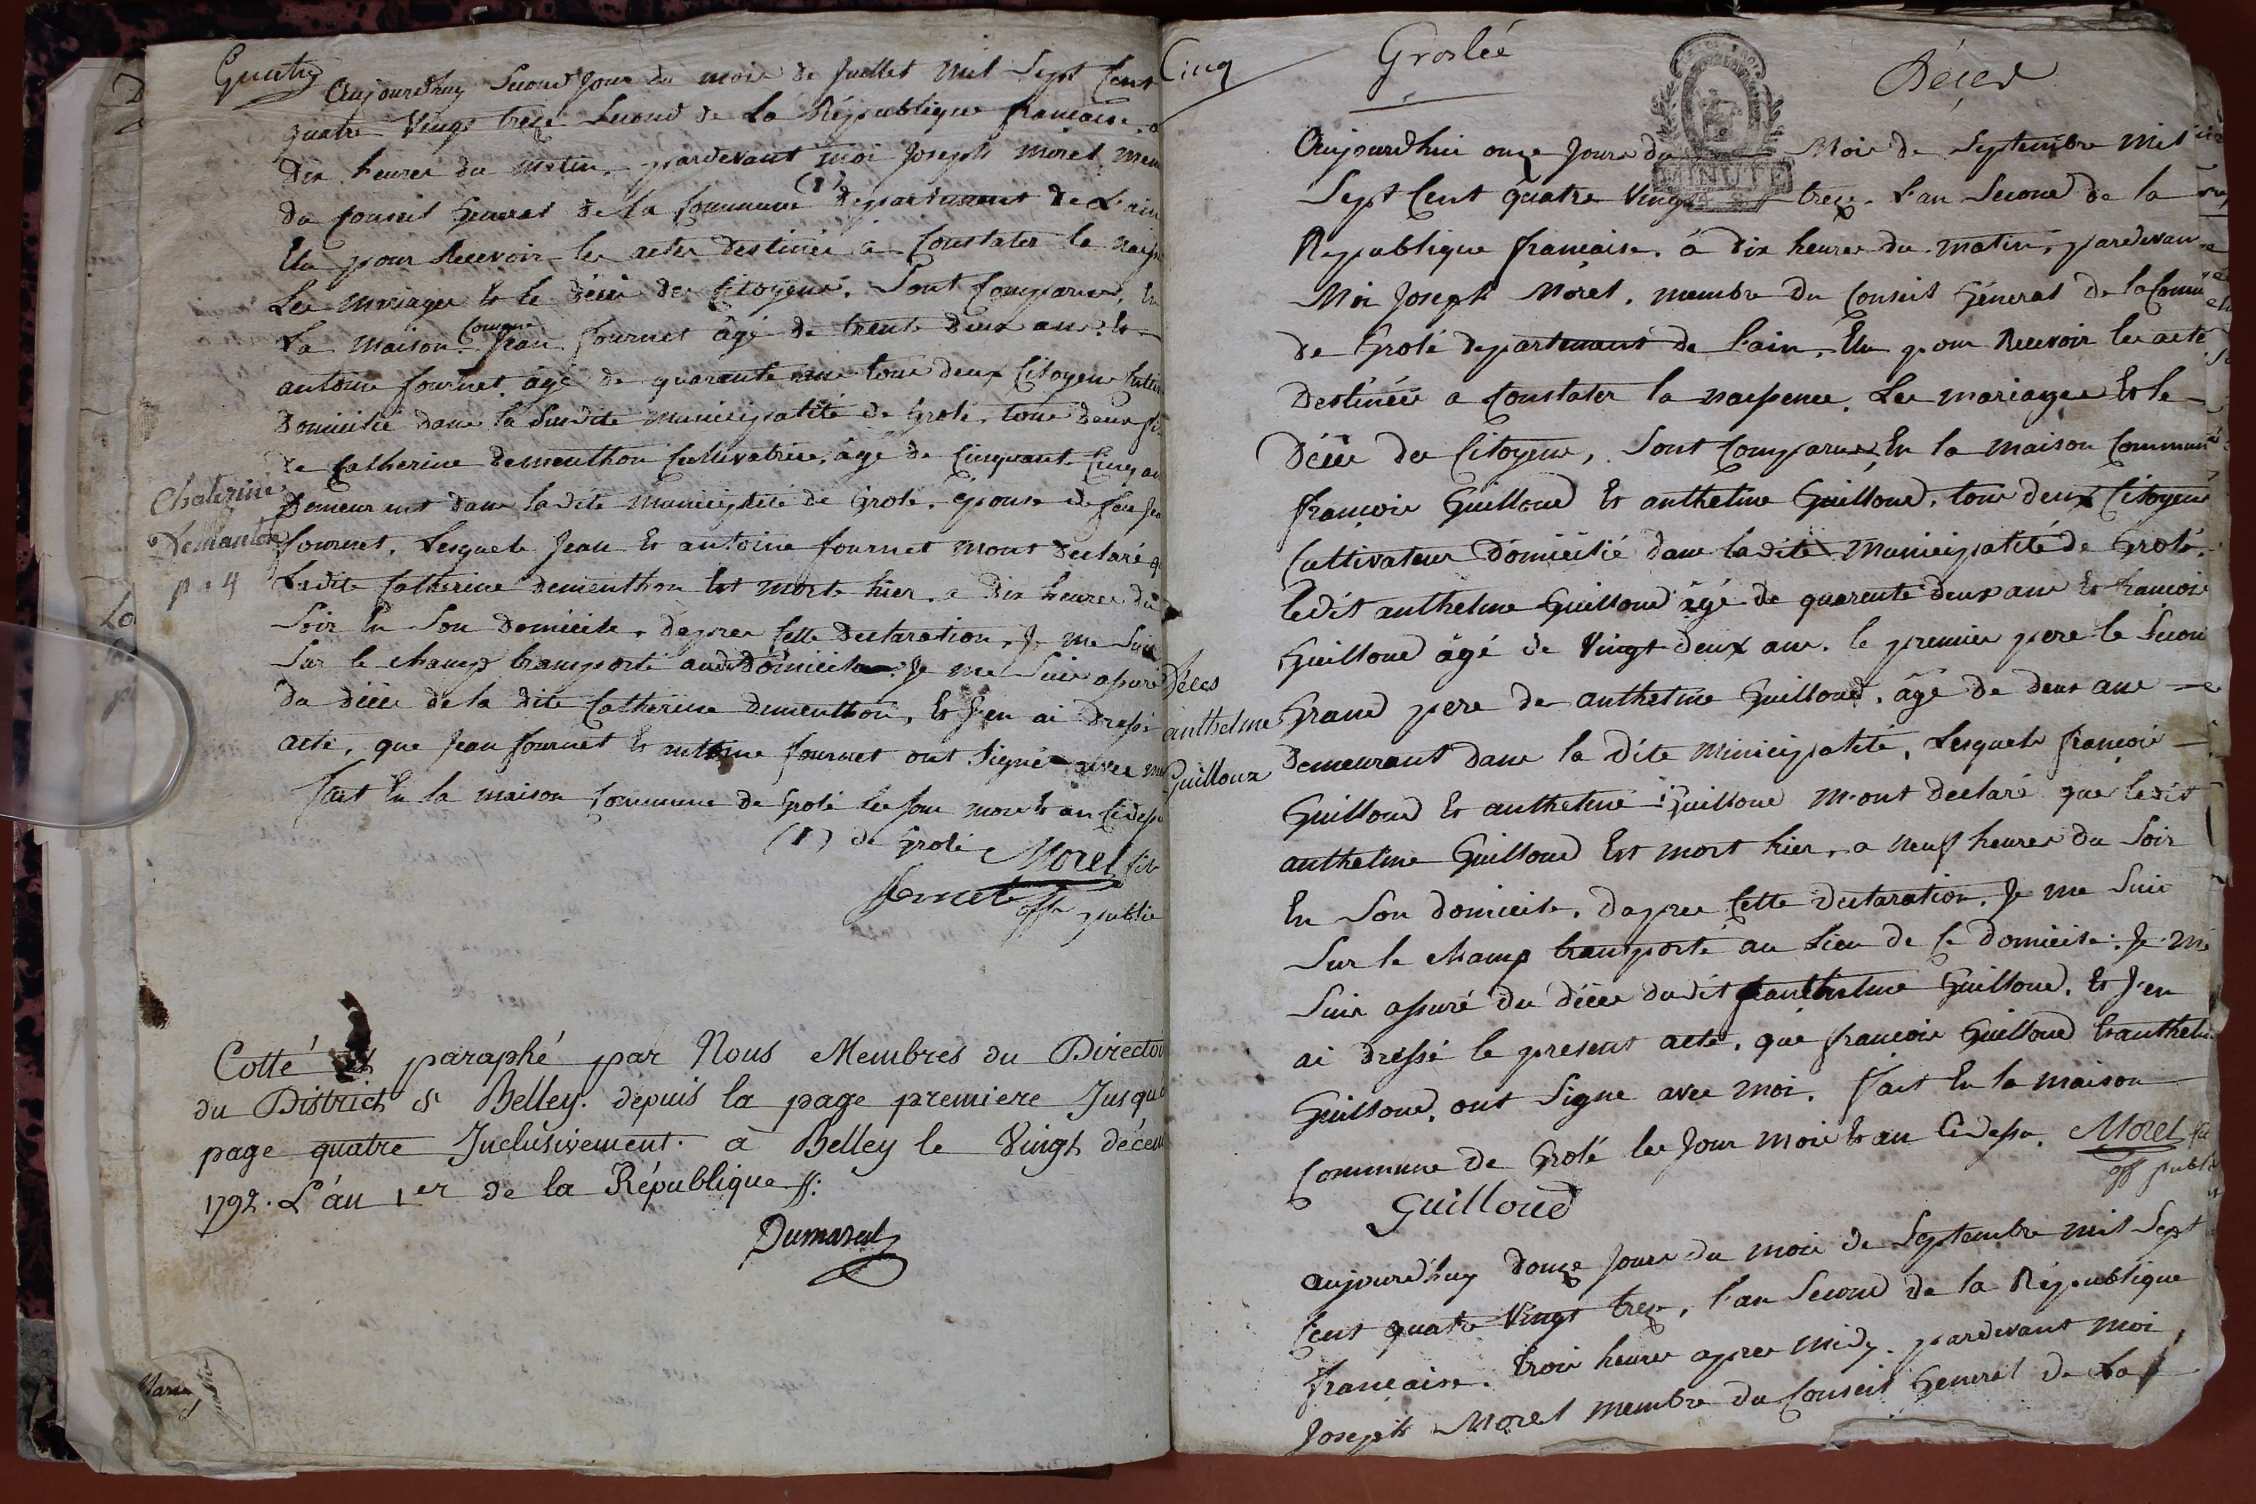 Quatre
Aujourdhuy Second Jour du mois de Juillet Mil Sept Cent
quatre Vingt treze Second de La République francaise. a
Dix heures du matin, pardevant moi Joseph Morel mem
du Conseil General de la Commune (1) departement de L'ain
Elu pour Recevoir les actes destinés à Constater le naiss
Les mariages et le décès des Citoyens. Sont Comparus, En
La maison Comune Jean fournet âgé de trente deux ans. et
antoine fournet âgé de quarante un tous deux Citoyens Cultiv
Domicilié dans la Susdite municipalité de Grolé. tous deux fi
de Catherine Dementhon Cultivatrice, âgé de Cinquante Cinq an
Chaterine
Demanton
p. 4
Demeurant dans ladite municiplité de Grolé. épouse de feu Jea
fournet, Lesquels Jean et antoine fournet mont declaré q
Ladite Catherine dementhon Est morte hier. a dix heures du
Soir En Son Domicile, dapres Cette Declaration, Je me Suis
Sur le champ transporté audit Domicile. Je me Suis assuré
du décès de la dite Catherine dementhon, Et J'en ai dressé
acte, que Jean fournet Et antoine fournet ont Signé avec moi
fait En la maison Commune de Grolé les Jour mois Et an Cidess
(1) de Grolé Morel fils
fornet off publi
Cotté et paraphé par Nous Membres du Directoi
du District de Belley. depuis la page premiere Jusqua
page quatre Inclusivement. à Belley le Vingt décem
1792. L'an 1er de la République
Dumarest
Cinq
Groslée
Décès
MINUTE
Aujourdhui onze Jours du Mois de Septembre mil
Sept Cent quatre Vingt treze. L'an Second de la
Republique francaise. à dix heures du matin, pardevan
Moi Joseph Morel. membre du Conseil Géneral de la Comm
de Grolé departement de L'ain, Elu pour Recevoir les acte
Destinés a Constater la naissence. Les mariages Et le
Décès des Citoyens, Sont Comparus En la maison Commun
françois Guilloud Et anthelme Guilloud, tous deux Citoyens
Cultivateur Domicilié dans ladite Municipalité de Grolé.
ledit anthelme Guilloud âgé de quarente deux ans Et francois
Guilloud âgé de Vingt deux ans. le premier pere le Secon
Décès
anthelme
Guilloux
Grand pere de anthelme Guilloud, âgé de deux ans
Demeurant dans la dite Minicipalité, Lesquels françois
Guilloud Et anthelme Guilloud m'ont declaré que ledit
anthelme Guilloud Est mort hier, a neuf heures du Soir
En Son domicile, dapres Cette declaration. Je me Suis
Sur le champ transporté au Lieu de Ce domicile. Je me
Suis assuré du décès dudit anthelme Guilloud, Et J'en
ai dressé le present acte, que francois Guilloud Et anthel
Guilloud, ont Signe avec moi. fait En la maison
Commune de Grolé les Jour mois Et an Cidessu. Morel
off publi
Guilloud
aujourdhuy Douze Jours du mois de Septembre mil Sept
Cent quatre Vingt treze, L'an Second de la République
française. trois heures apres midy. pardevant moi
Joseph Morel membre du Conseil General de La